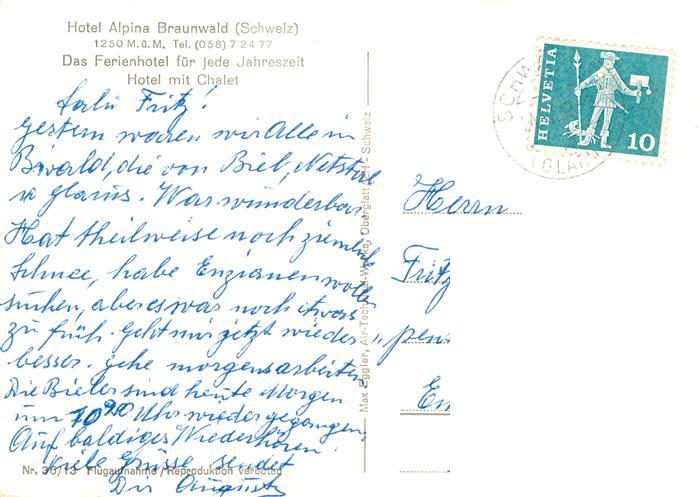 Hotel Alpina Braunwald (Schweiz)
1250 M.ü.M. Tel. (058) 7 24 77
Das Ferienhotel für jede Jahreszeit
Hotel mit Chalet
Salü Fritz!
gestern waren wir Alle in
Bwald, die von Biel, Netstal
u glarus. War wunderbar
Hat theilweise noch ziemlich
Schnee, habe Enzianen wollen
suchen, aber es war noch etwas
zu früh. geht mir jetzt wieder
besser. gehe morgens arbeiten
Die Bieler sind heute Morgen
um Uhr wieder gegangen.
Auf baldiges Wiederhören.
Viele Grüsse sendet
Dir August
Nr. 36/13 Flugaufnahme / Reproduktion verboten
Max Eggler, Air-Technical-Works, Oberglatt Schweiz
HELVETIA
10
Herrn
Fritz
pens.